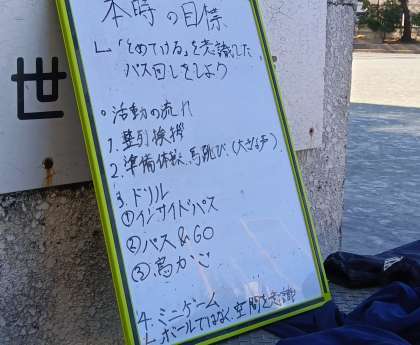 本時の目標
└「とめてける」を意識した
パス回しをしよう
○活動の流れ
1. 整列挨拶
2. 準備体操、馬跳び、(大きな声)
3. ドリル
①インサイドパス
②パス&GO
③鳥かご
4. ミニゲーム
└ボールではなく、空間を意識
世